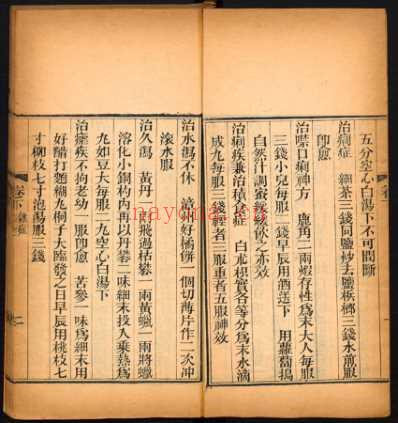 五分空心白湯下不可間斷
治痢症　細茶三錢同鹽炒去鹽檳榔三錢水煎服
卽愈
治噤口痢神方　鹿角二兩煅存性爲末大人每服
三錢小兒每服一錢早辰用酒送下　用蘿蔔搗
自然汁調蜜緩緩飲之亦效
治痢疾兼治積食症　白朮枳實各等分爲末水滴
成丸每服三錢輕者二服重者五服神效
治水瀉不休　漳州好橘餅一個切薄片作二次冲
滾水服
治久瀉　黃丹一兩飛過枯礬一兩黃蠟一兩將蠟
溶化小銅杓內再以丹礬二味細末投入乘熱爲
丸如豆大每服二丸空心白湯下
治瘧疾不拘老幼一服卽愈　苦參一味爲細末用
好醋打麵糊丸桐子大臨發之日早辰用桃枝七
寸柳枝七寸泡湯服三錢
卷下
nayona.cn